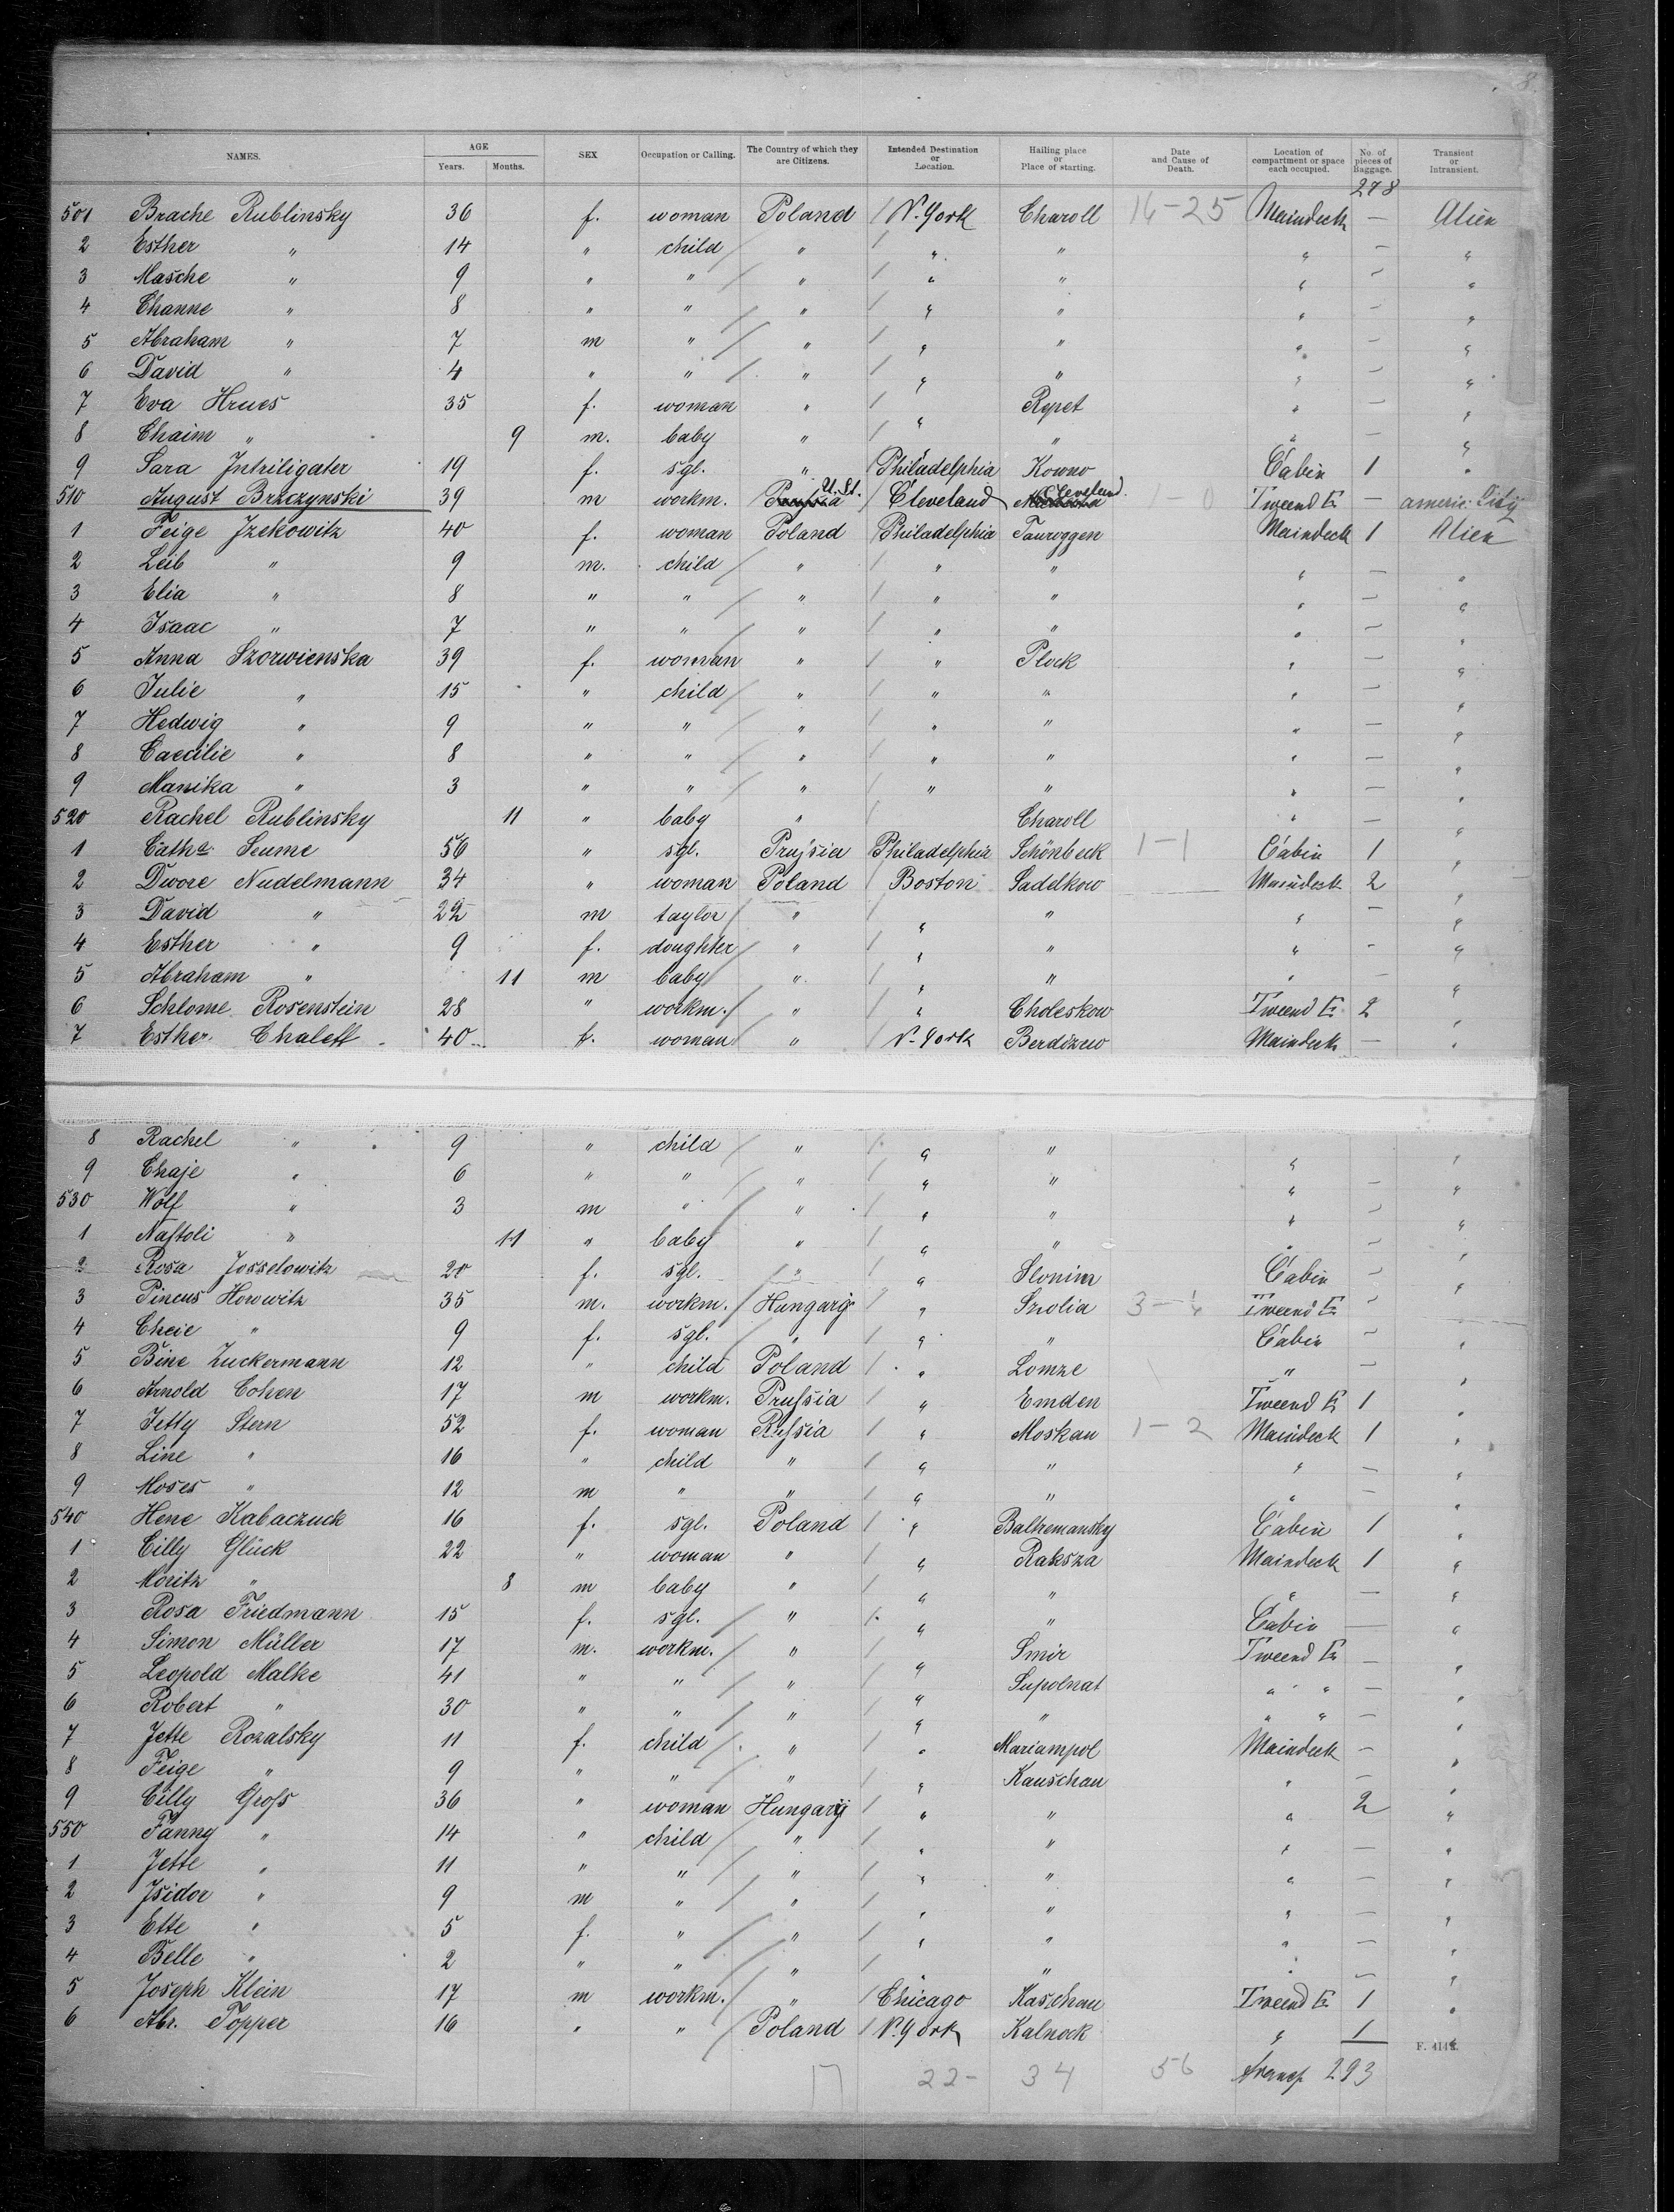 8.
NAMES. AGE Years. Months. SEX Occupation or Calling. The Country of which they are Citizens. Intended Destination or Location. Hailing place or Place of starting. Date and Cause of Death. Location of compartment or space each occupied. No. of pieces of Baggage. Transient or Intransient.
278
501 Brache Rublinsky 36 f. woman Poland / N. York Charoll 14-25 Maindeck — Alien
2 Esther " 14 " child / " / " " " — "
3 Masche " 9 " " " / " " " — "
4 Channe " 8 " " / " / " " " — "
5 Abraham " 7 m " / " / " " " — "
6 David " 4 " " / " / " " " — "
7 Eva Hrues 35 f. woman " / " Rypet " — "
8 Chaim " 9 m. baby " / " " " — "
9 Sara Intriligater 19 f. sgl. " / Philadelphia Kowno Cabin 1 "
510 August Brzczynski 39 m workm. Prussia U. St. / Cleveland Cleveland. 1-0 Tweend E — americ. City
1 Feige Izekowitz 40 f. woman Poland / Philadelphia Tauroggen Maindeck 1 Alien
2 Leib " 9 m. child " / " " " — "
3 Elia " 8 " " / " / " " " — "
4 Isaac " 7 " " / " / " " " — "
5 Anna Szorwienska 39 f. woman " / " Plock " — "
6 Julie " 15 " child / " / " " " — "
7 Hedwig " 9 " " / " / " " " — "
8 Caecilie " 8 " " / " / " " " — "
9 Manika " 3 " " / " / " " " — "
520 Rachel Rublinsky 11 " baby " / Charoll " — "
1 Catha Seume 56 " sgl. Prussia Philadelphia Schönbeck 1-1 Cabin 1 "
2 Dwore Nudelmann 34 " woman Poland / Boston Sadelkow Maindeck 2 "
3 David " 22 m taylor / " / " " " — "
4 Esther " 9 f. doughter / " / " " " — "
5 Abraham " 11 m baby / " / " " " — "
6 Schlome Rosenstein 28 " workm. / " / " Choleskow Tweend E 2 "
7 Esther Chaleff 40 f. woman " / N. York Berdizew Maindeck — "
8 Rachel " 9 " child / " / " " " — "
9 Chaje " 6 " " / " / " " " — "
530 Wolf " 3 m " / " / " " " — "
1 Naftoli " 11 " baby " / " " " — "
2 Rosa Josselowitz 20 f. sgl. / " / " Slonim Cabin — "
3 Pincus Horowitz 35 m. workm. / Hungary / " Szolia 3-1/4 Tweend E — "
4 Cheie " 9 f. sgl. / " / " " Cabin — "
5 Bine Zuckermann 12 " child Poland / " Lomze " — "
6 Arnold Cohen 17 m workm. Prussia / " Emden Tweend E 1 "
7 Jetty Stern 52 f. woman Russia / " Moskau 1-2 Maindeck 1 "
8 Line " 16 " child " / " " " — "
9 Moses " 12 m " " / " " " — "
540 Hene Kabaczuck 16 f. sgl. Poland / " Balhemansky Cabin 1 "
1 Cilly Glück 22 " woman " / " Raksza Maindeck 1 "
2 Moritz " 8 m baby " / " " " — "
3 Rosa Friedmann 15 f. sgl. / " / " " Cabin — "
4 Simon Müller 17 m. workm. / " / " Smir Tweend E — "
5 Leopold Malke 41 " " / " / " Supolnat " " — "
6 Robert " 30 " " / " / " " " " — "
7 Jette Rozalsky 11 f. child / " / " Mariampol Maindeck — "
8 Feige " 9 " " / " / " Kauschau " — "
9 Cilly Gross 36 " woman Hungary / " " " 2 "
550 Fanny " 14 " child / " / " " " — "
1 Jette " 11 " " / " / " " " — "
2 Isidor " 9 m " / " / " " " — "
3 Ette " 5 f. " / " / " " " — "
4 Belle " 2 " " / " / " " " — "
5 Joseph Klein 17 m workm. / " / Chicago Kaschau Tweend E 1 "
6 Abr. Topper 16 " " / Poland / N. York Kalnock " 1 "
17 22- 34 56 transp. 293
F. 414